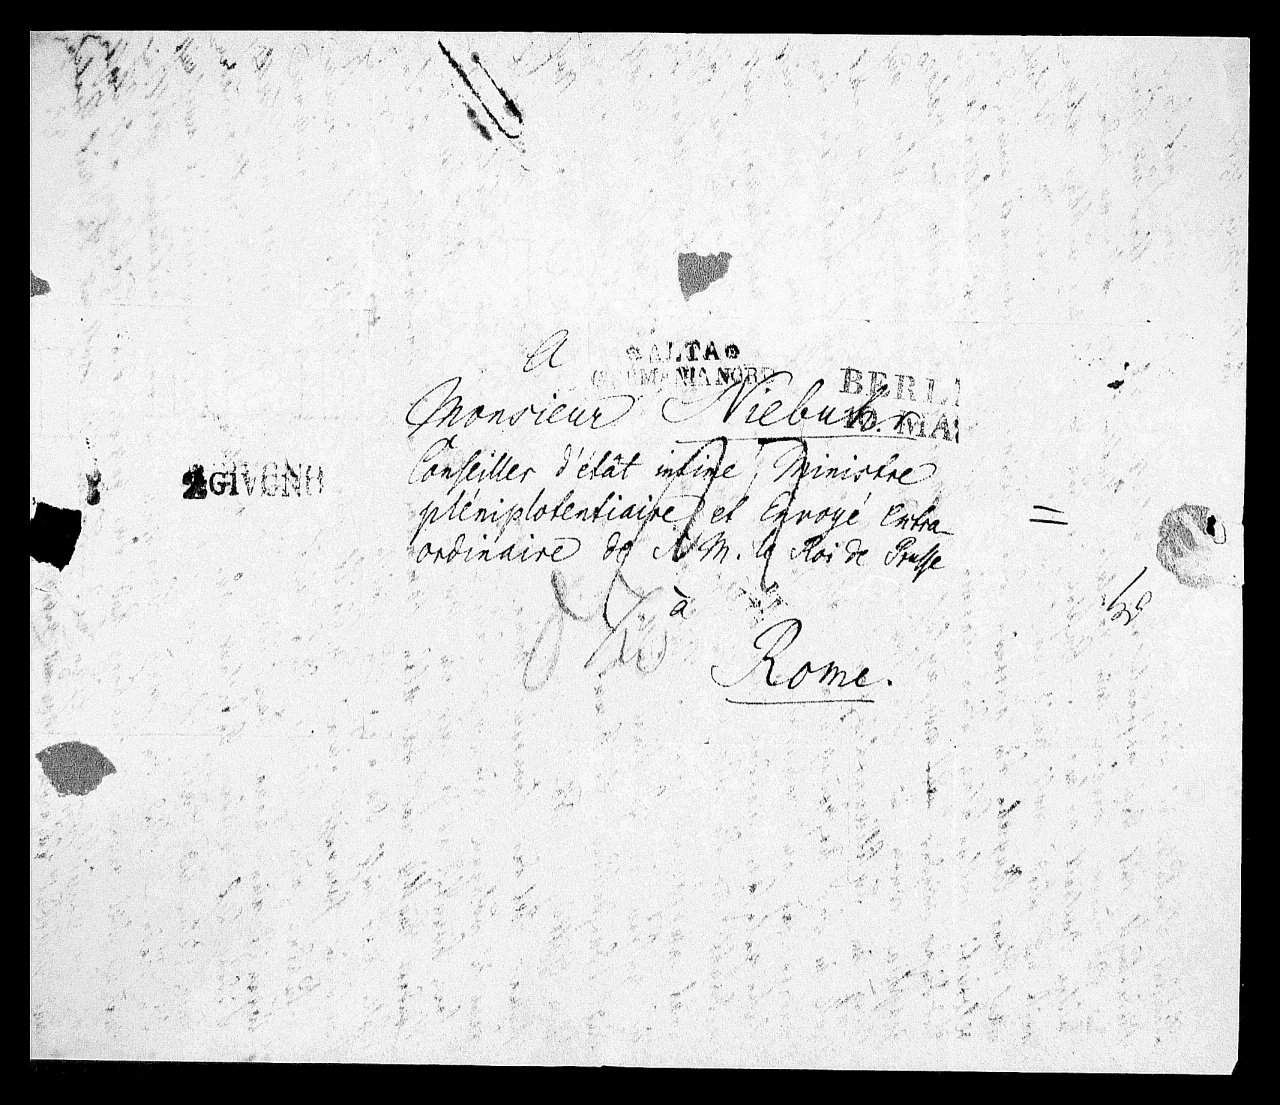 A
ALTA
GERMANIA NORD
BERLI
10. MAI
Monsieur Niebuhr
Conseiller d'étât intime, Ministre
pléniplotentiaire et Envoyé Extra-
ordinaire de S. M. le Roi de Prusse
2 GIUGNO
à
Rome.